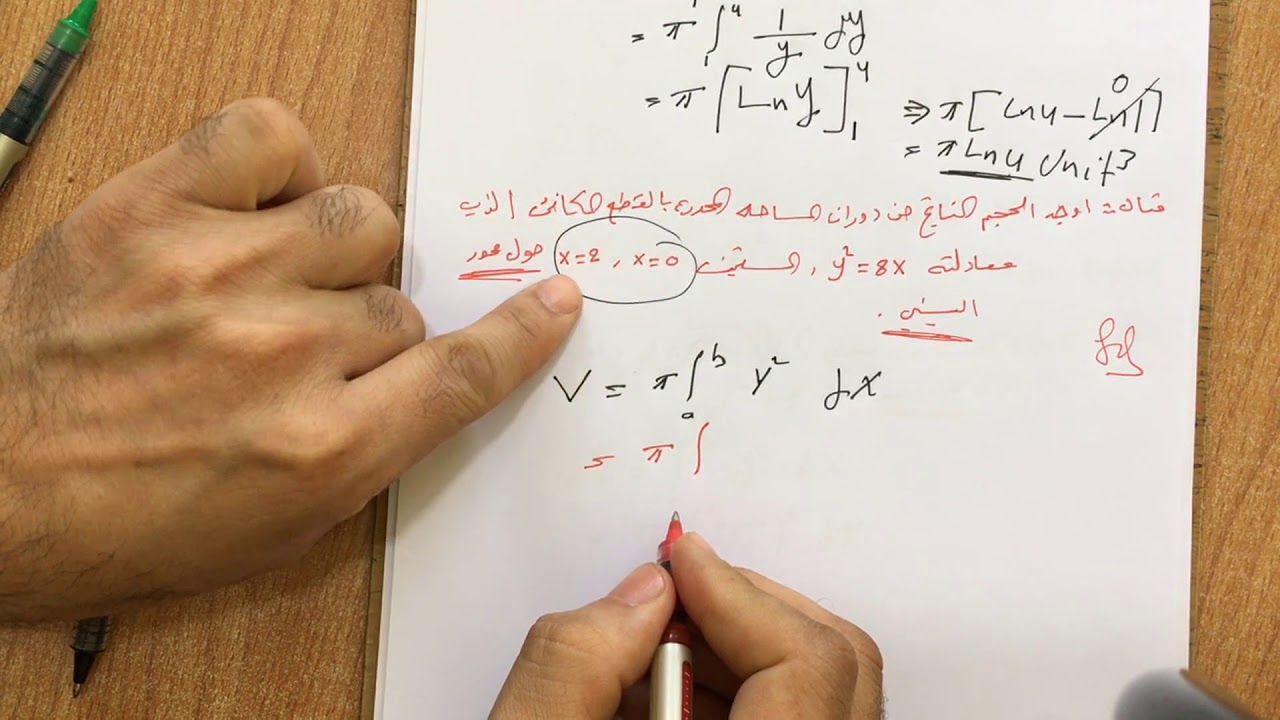 = π ∫₁⁴ 1/y dy
= π [Ln y]₁⁴ ⇒ π [Ln4 − Ln1] 0
= π Ln4 Unit³
مثال: اوجد الحجم الناتج من دوران المساحه المحدده بالقطع المكافئ الذي
معادلته y² = 8x , المستقيمين x=0 , x=2 حول محور
السيني .
V = π ∫ₐᵇ y² dx
= π ∫